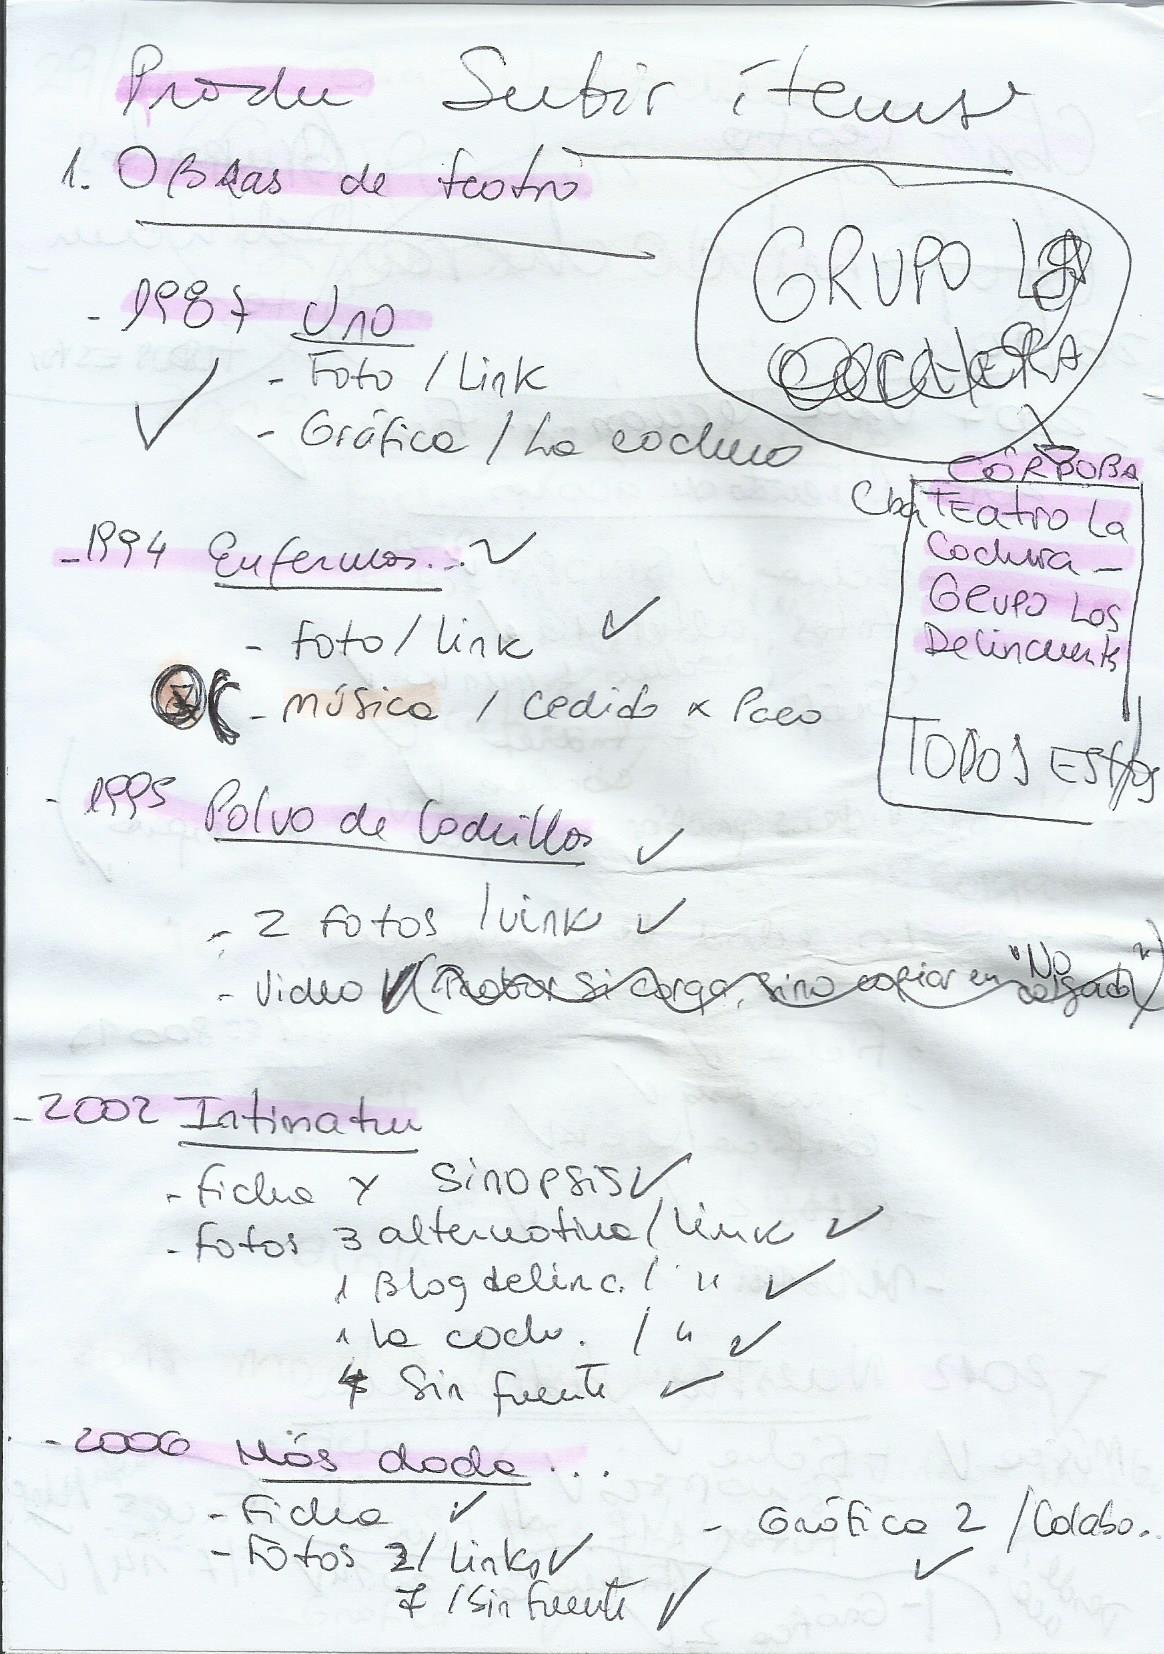 Produ Subir ítems
1. Obras de teatro
GRUPO LA
COCHERA
- 1987 Uno
- Foto / Link
- Gráfica / La cochera
CÓRDOBA
Cba TEatro La
Cochera -
GRUPO Los
Delincuentes
TODOS ESTOS
- 1994 Enfermos...
- Foto / link
- música / cedido x Paco
- 1995 Polvo de Ladrillos
- 2 fotos / link
- Video (Probar si carga, sino copiar en "No cargado")
- 2002 Intimatum
- Ficha y sinopsis
- Fotos 3 alternativa / link
1 Blog delinc. / "
1 La coch. / "
4 Sin fuente
- 2006 Más dada...
- Ficha
- Fotos 2 / Links
7 / Sin fuente
- Gráfica 2 / Colabo.